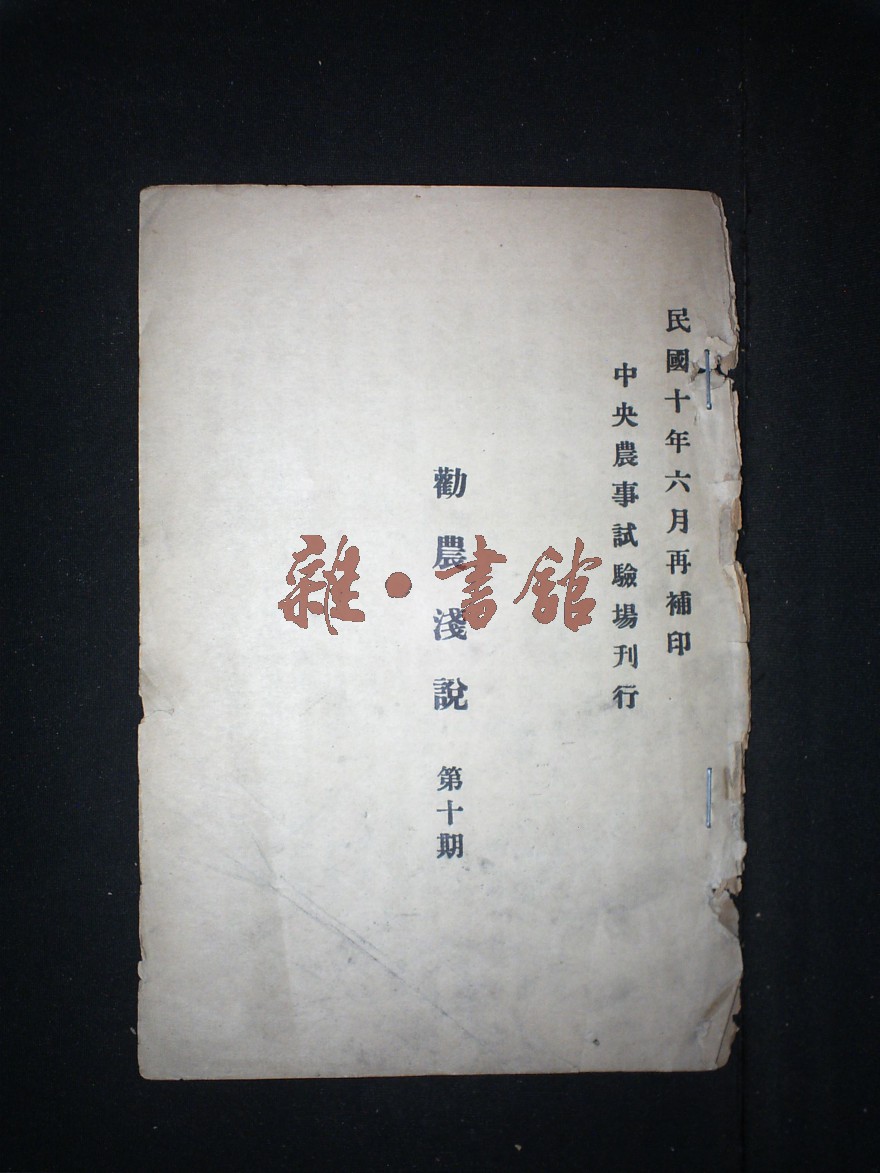 民國十年六月再補印
中央農事試驗場刊行
勸農淺說 第十期
雜·書館